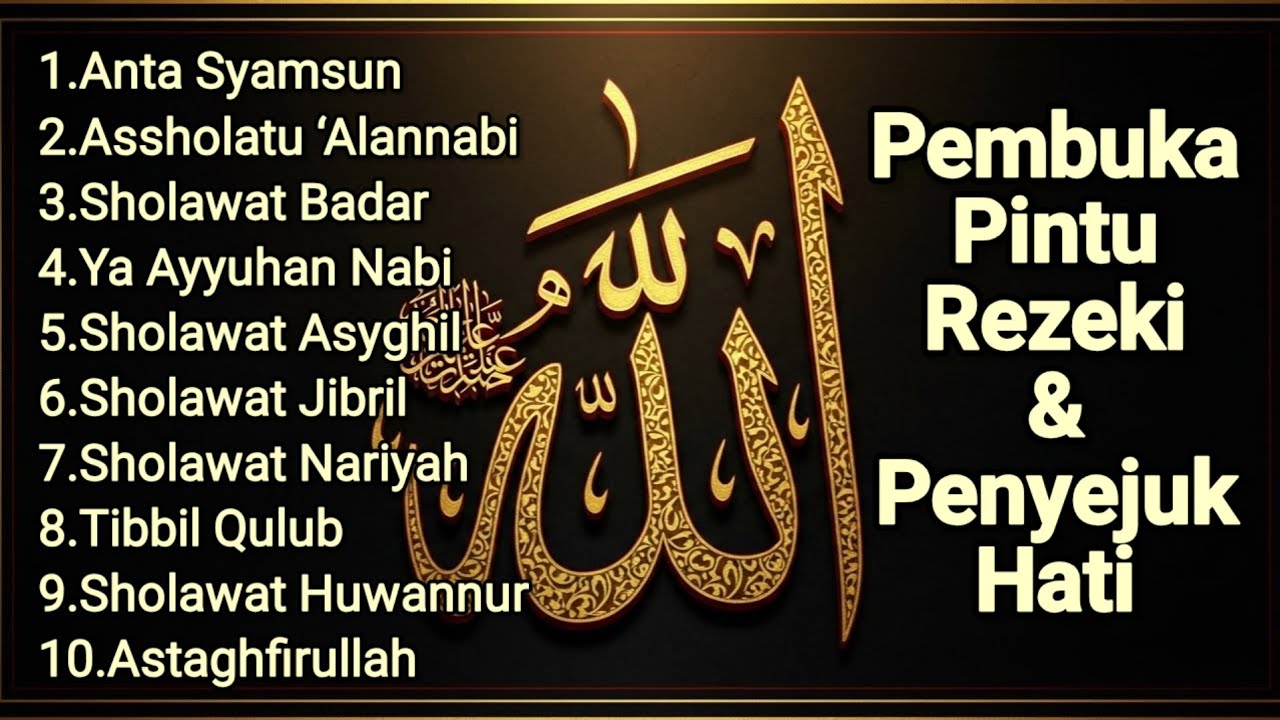 1.Anta Syamsun
2.Assholatu ‘Alannabi
3.Sholawat Badar
4.Ya Ayyuhan Nabi
5.Sholawat Asyghil
6.Sholawat Jibril
7.Sholawat Nariyah
8.Tibbil Qulub
9.Sholawat Huwannur
10.Astaghfirullah
الله
Pembuka
Pintu
Rezeki
&
Penyejuk
Hati